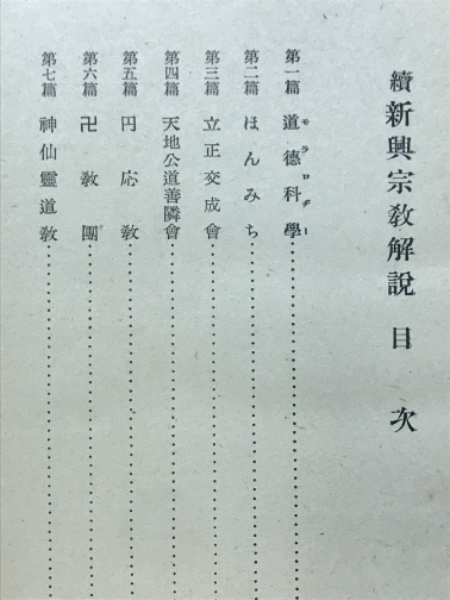 續 新興宗教解説 目次
第一篇 道德科學
モラロヂー
第二篇 ほんみち
第三篇 立正交成會
第四篇 天地公道善隣會
第五篇 円応教
第六篇 卍教團
第七篇 神仙靈道教